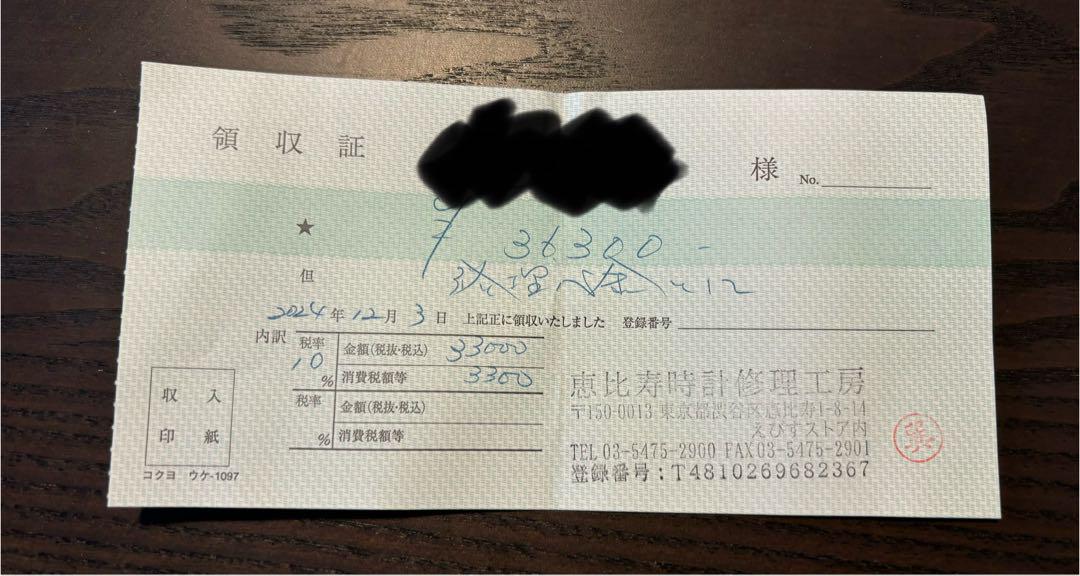 領収証 様 No.
★ ¥36300-
但 修理代金として
2024年12月3日 上記正に領収いたしました 登録番号
内訳 税率 10% 金額(税抜・税込) 33000
消費税額等 3300
税率 % 金額(税抜・税込)
消費税額等
収入
印紙
コクヨ ウケ-1097
恵比寿時計修理工房
〒150-0013 東京都渋谷区恵比寿1-8-14
えびすストア内
TEL 03-5475-2900 FAX03-5475-2901
登録番号:T4810269682367